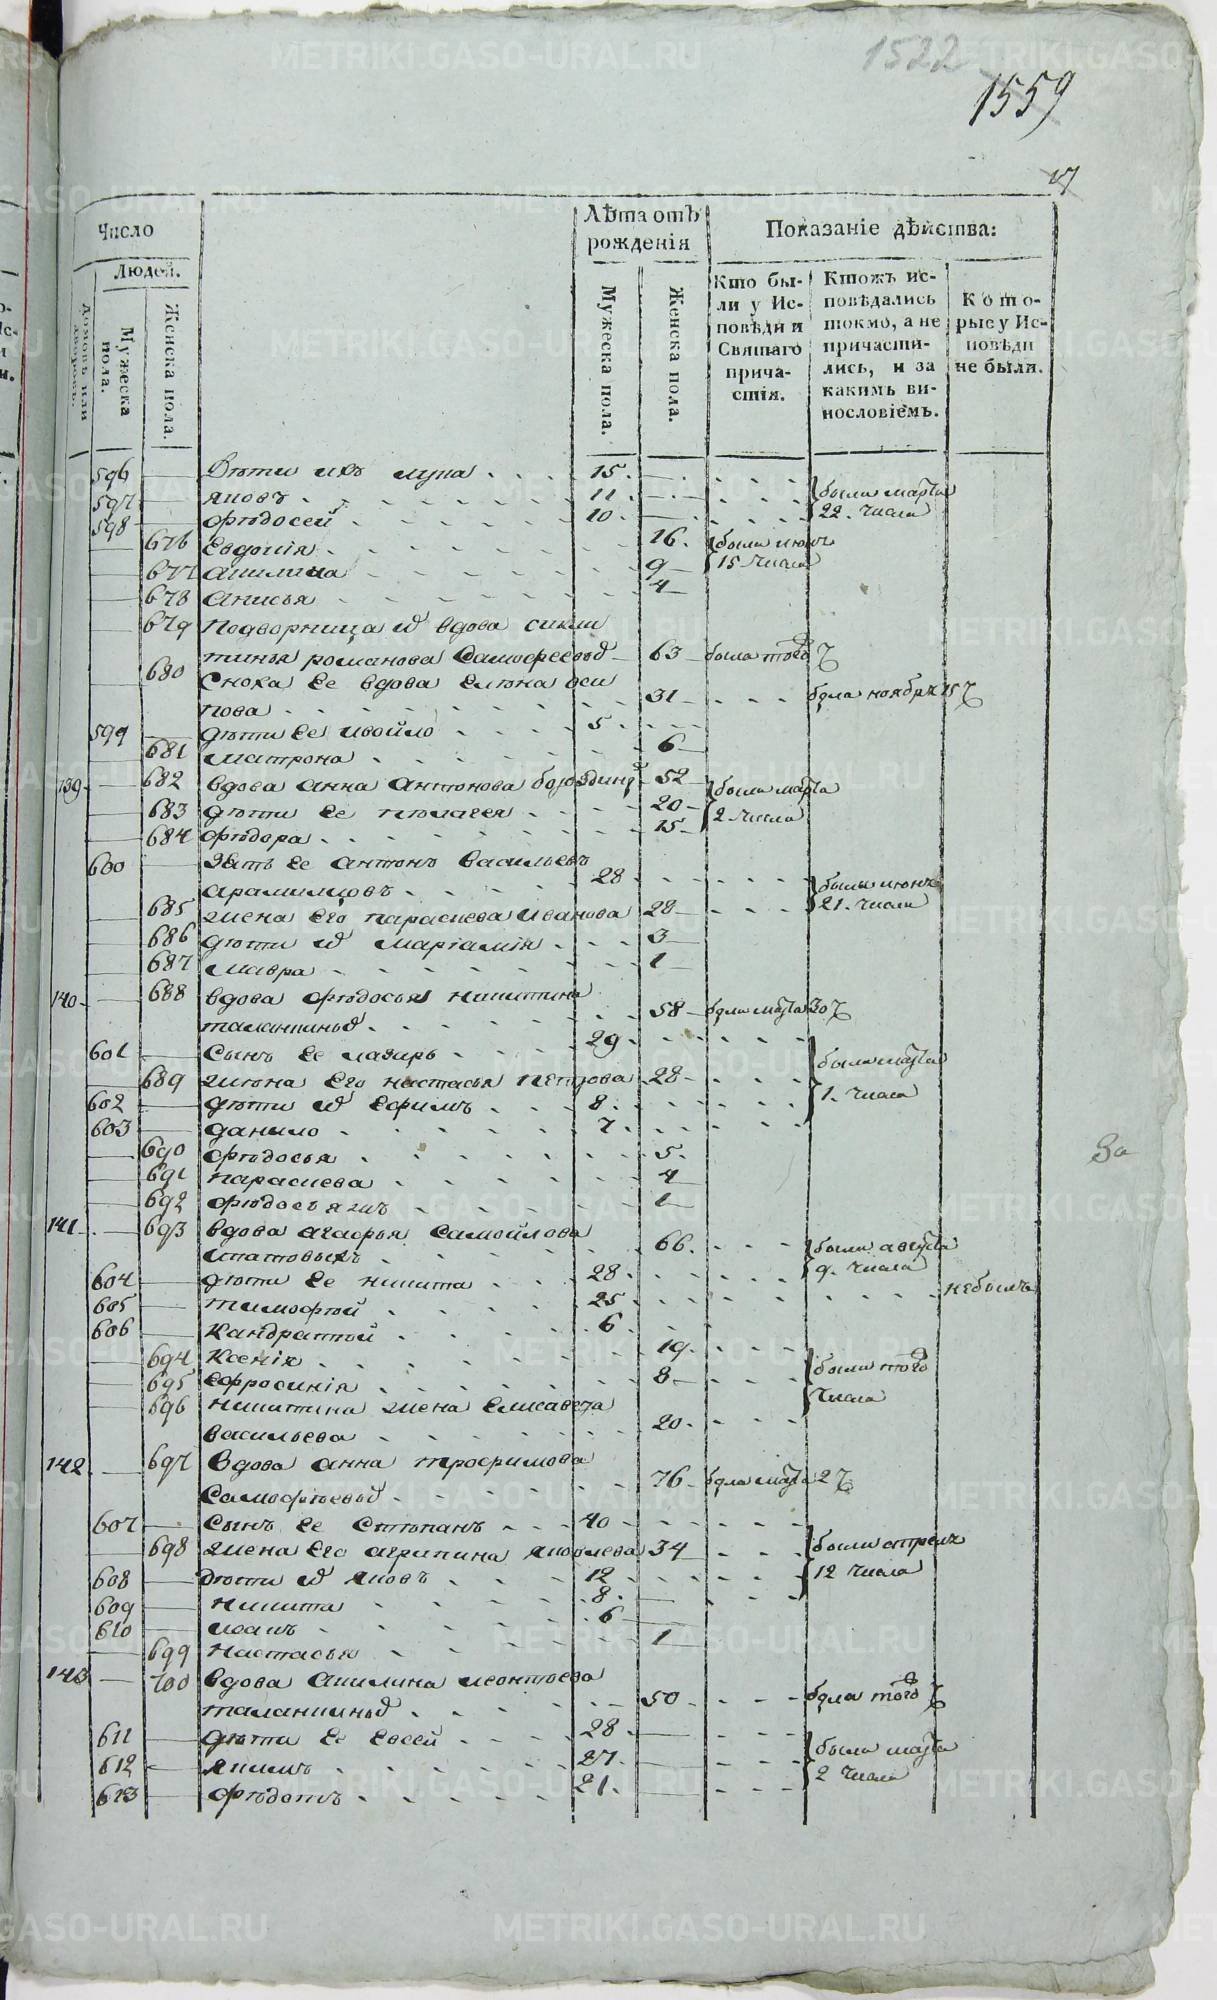 1522
1559
17
Число
Людей.
Домовъ или дворовъ.
Мужеска пола.
Женска пола.
Лѣта отъ рожденія
Мужеска пола.
Женска пола.
Показаніе дѣйства:
Кто бы-
ли у Ис-
повѣди и
Святаго
прича-
стія.
Ктожъ ис-
повѣдались
токмо, а не
причасти-
лись, и за
какимъ ви-
нословіемъ.
Кото-
рые у Ис-
повѣди
не были.
596 — Дѣти ихъ лупа 15.
597 — яковъ 11 были марта
598 — ѳеодосей 10 22. числа
— 676 Евдокія 16. были июня
— 677 акилина 9 15 числа
— 678 Анисья 4
— 679 Подворница и вдова
романова 63 была того ч
— 680 Сноха Ее вдова Елена оси
пова 31 была ноября 15 ч
599 — дѣти Ее 5
— 681 Матрона 6
139 — 682 вдова Анна Антонова 52 были марта
— 683 дѣти Ее пелагея 20 2 числа
— 684 ѳедора 15
600 — Зять Ее антонъ Васильевъ
28 были июня
— 685 жена Его параскева Иванова 28 21. числа
— 686 дѣти и маріамія 3
— 687 Мавра 1
140 — 688 вдова ѳеодосья никитина
58 была марта 30 ч
601 — Сынъ Ее лазарь 29 были марта
— 689 жена Его настасья петрова 28 1. числа
602 — дѣти и Ефимъ 8
603 — данило 7
— 690 ѳеодосья 5
— 691 параскева 4
— 692 1
141 — 693 вдова агафья Самойлова
Ипатовыхъ 66. были августа
604 — дѣти Ее никита 28 9. числа
605 — тимофей 25 небылъ
606 — Кандратей 6
— 694 Ксенія 19 были того
— 695 Ефросинія 8 числа
— 696 никитина жена Елисавета
васильева 20
142 — 697 Вдова анна трофимова
76 была марта 2 ч
607 — Сынъ Ее Степанъ 40 были апреля
— 698 жена Его агрипина яковлева 34 12 числа
608 — дѣти и яковъ 12
609 — никита 8
610 — 6
— 699 настасья 1
143 — 700 вдова Акилина леонтьева
50 была того ч
611 — дѣти Ее Евсей 28 были марта
612 — якимъ 27 2 числа
613 — ѳедотъ 21
За
METRIKI.GASO-URAL.RU